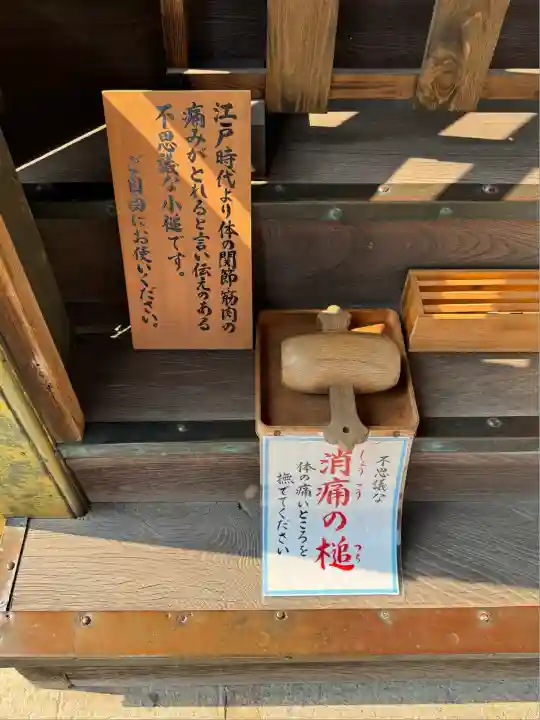 江戸時代より体の関節筋肉の
痛みがとれると言い伝えのある
不思議な小槌です。
ご自由にお使いください。
不思議な
消痛の槌
しょうつう
つち
体の痛いところを
撫でてください